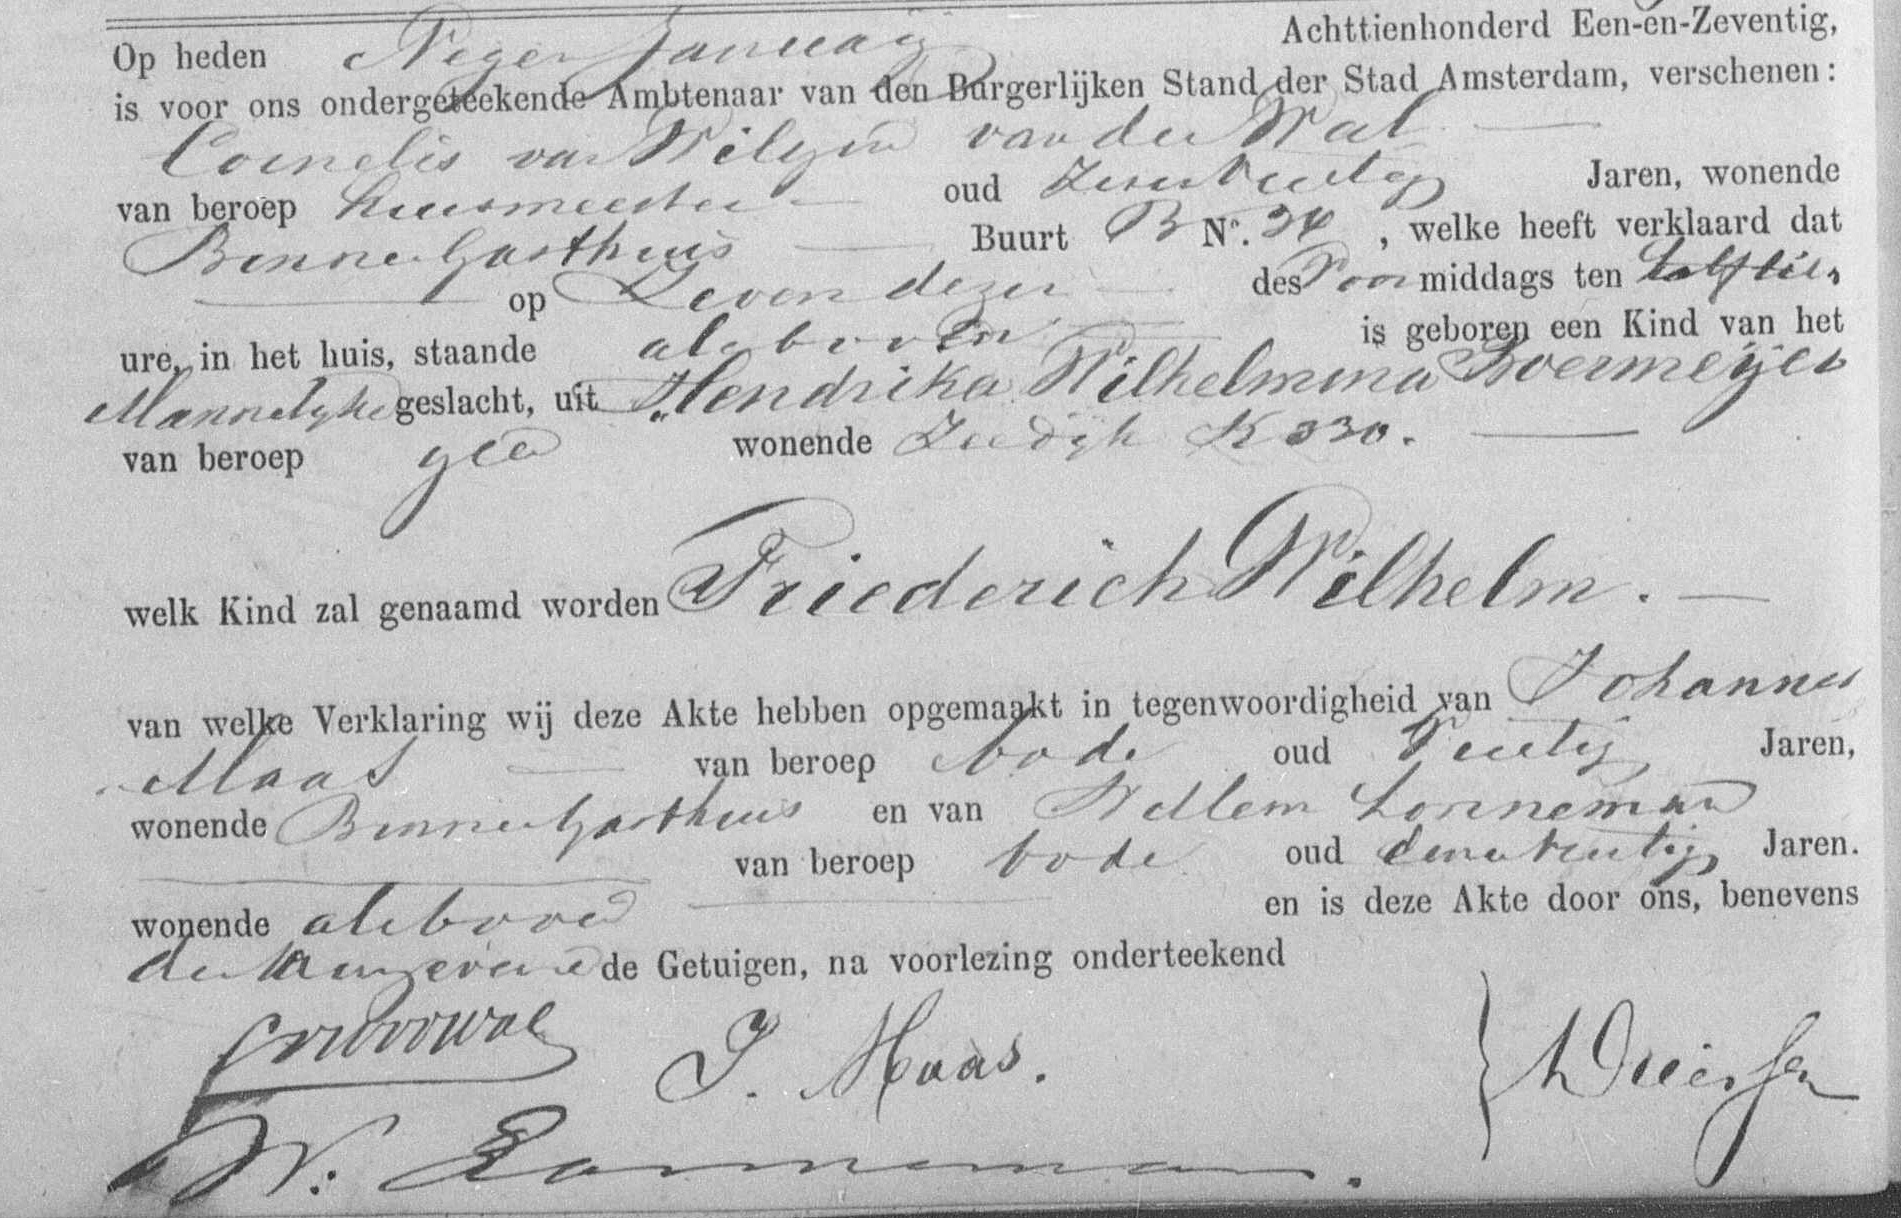 Op heden Negen Januarij Achttienhonderd Een-en-Zeventig,
is voor ons ondergeteekende Ambtenaar van den Burgerlijken Stand der Stad Amsterdam, verschenen:
Cornelis van Wilgen van der Wal
van beroep huismeester oud Jaren, wonende
Binnen Gasthuis Buurt B No. 34, welke heeft verklaard dat
op Zeven dezer des Voor middags ten half
ure, in het huis, staande alsboven is geboren een Kind van het
Mannelijke geslacht, uit Hendrika Wilhelmina Boermeijer
van beroep geen wonende Zeedijk K 330.
welk Kind zal genaamd worden Friederich Wilhelm.
van welke Verklaring wij deze Akte hebben opgemaakt in tegenwoordigheid van Johannes
Maas van beroep bode oud Jaren,
wonende Binnen Gasthuis en van Willem Lonneman
van beroep bode oud Jaren.
wonende alsboven en is deze Akte door ons, benevens
den Aangever en de Getuigen, na voorlezing onderteekend
J. Maas.
W. Lonneman.